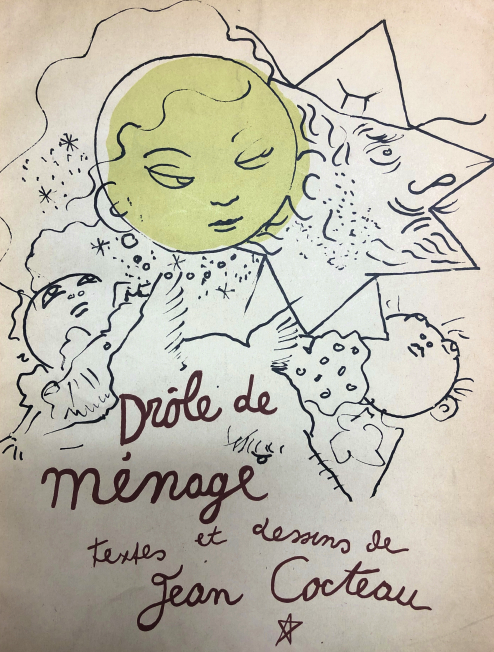 Drôle de
ménage
textes et dessins de
Jean Cocteau